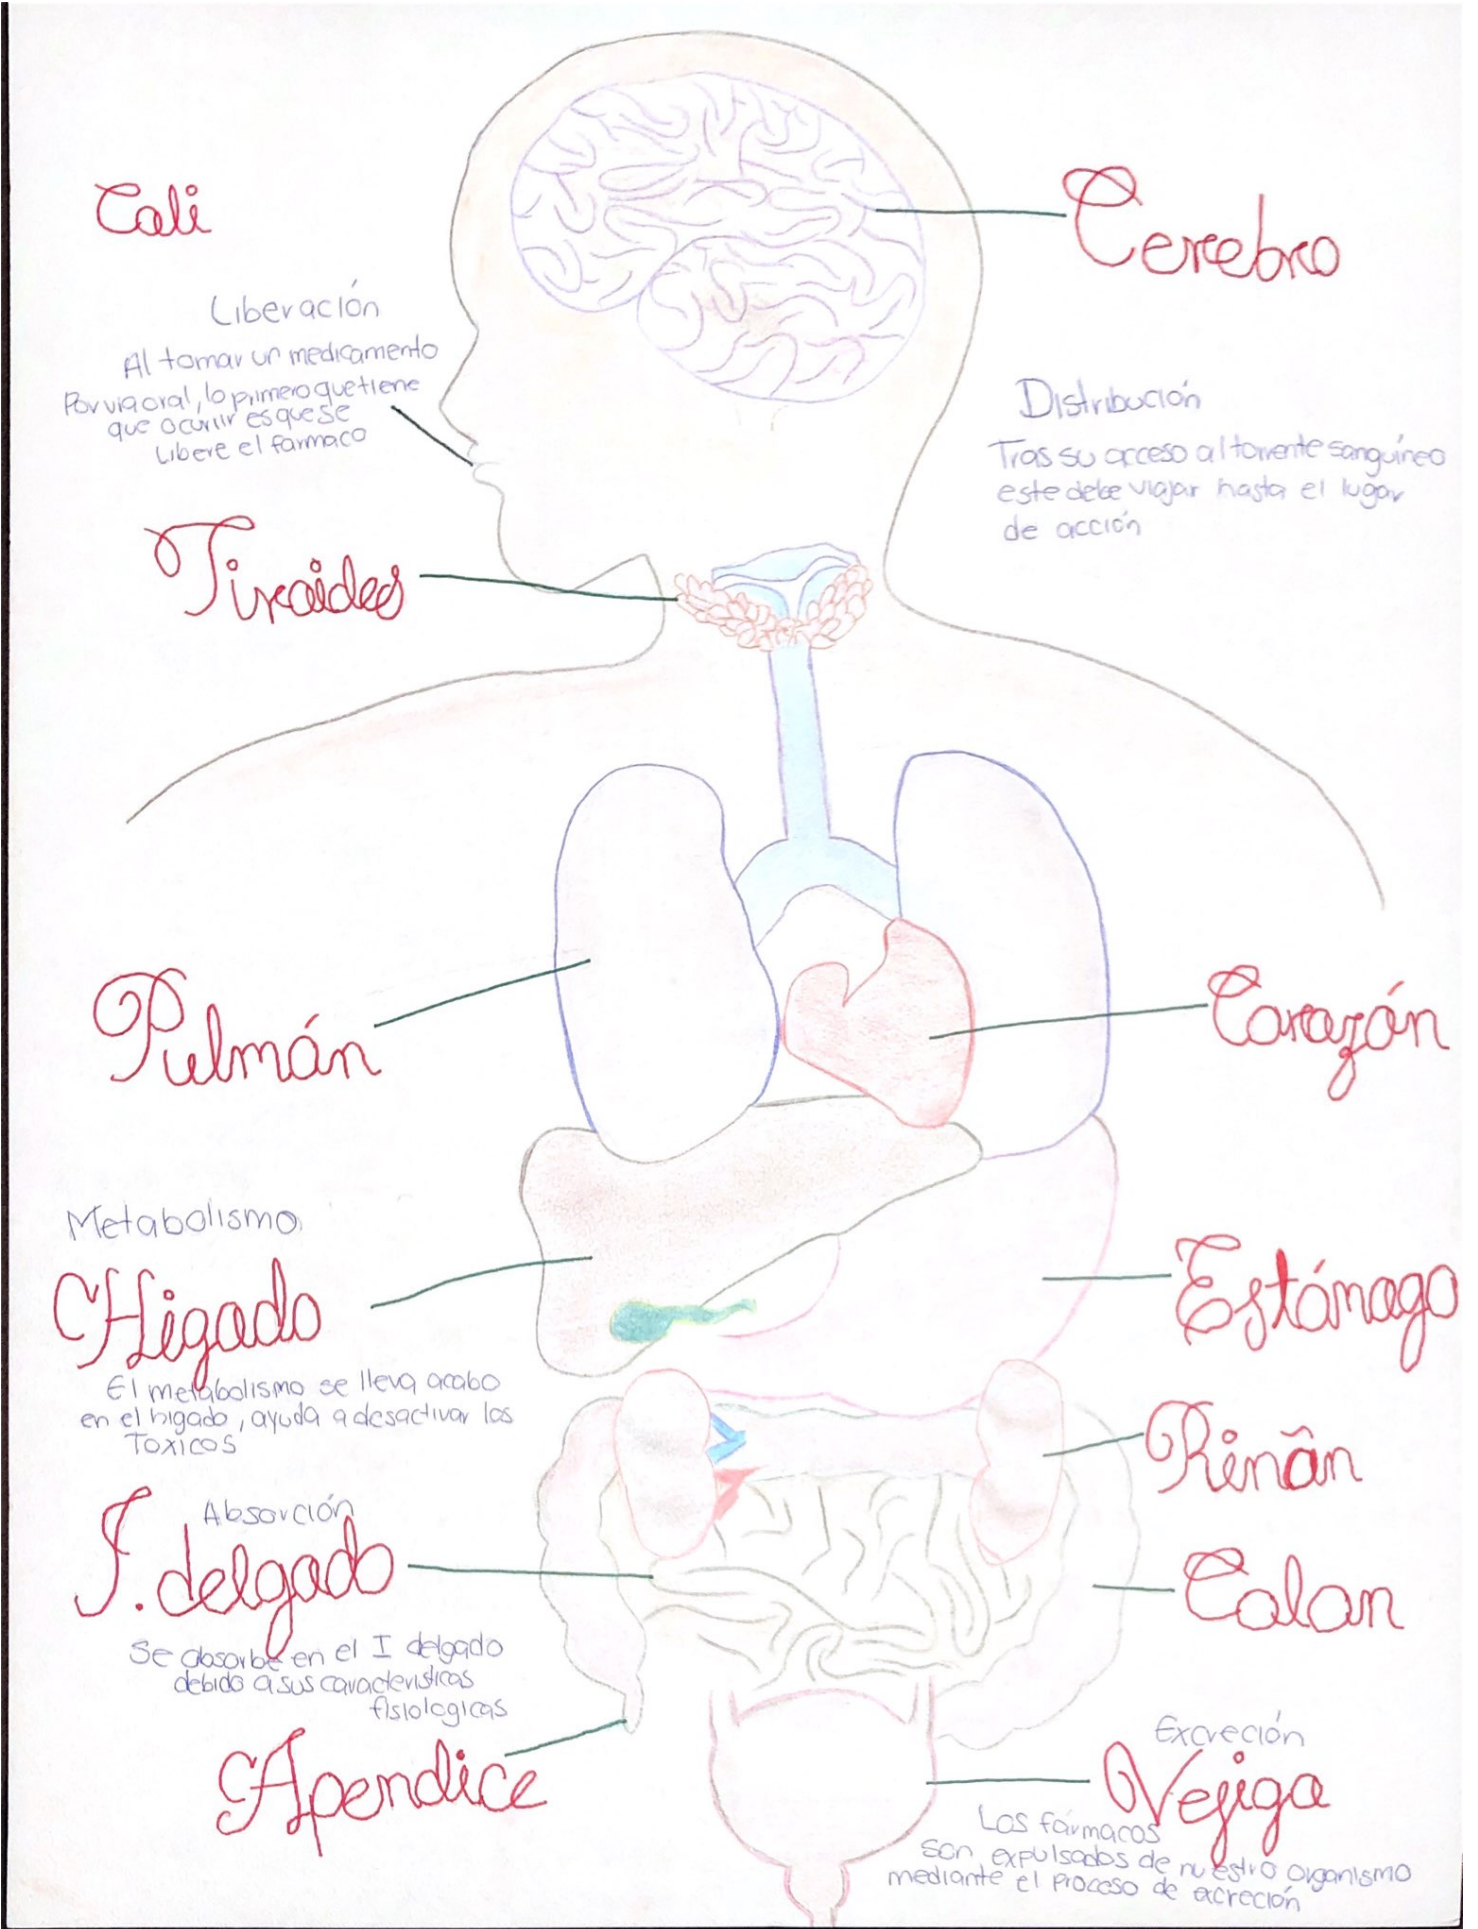 Cali
Cerebro
Liberación
Al tomar un medicamento
Por via oral, lo primero que tiene
que ocurrir es que se
Libere el farmaco
Distribución
Tras su acceso al torrente sanguíneo
este debe viajar hasta el lugar
de acción
Tiroides
Pulmón
Corazón
Metabolismo
Higado
El metabolismo se lleva acabo
en el higado, ayuda a desactivar los
Toxicos
Estómago
Riñón
Absorción
I. delgado
Se absorbe en el I delgado
debido a sus caracteristicas
fisiologicas
Colon
Apendice
Excreción
Vejiga
Los fármacos
son expulsados de nuestro organismo
mediante el proceso de excreción